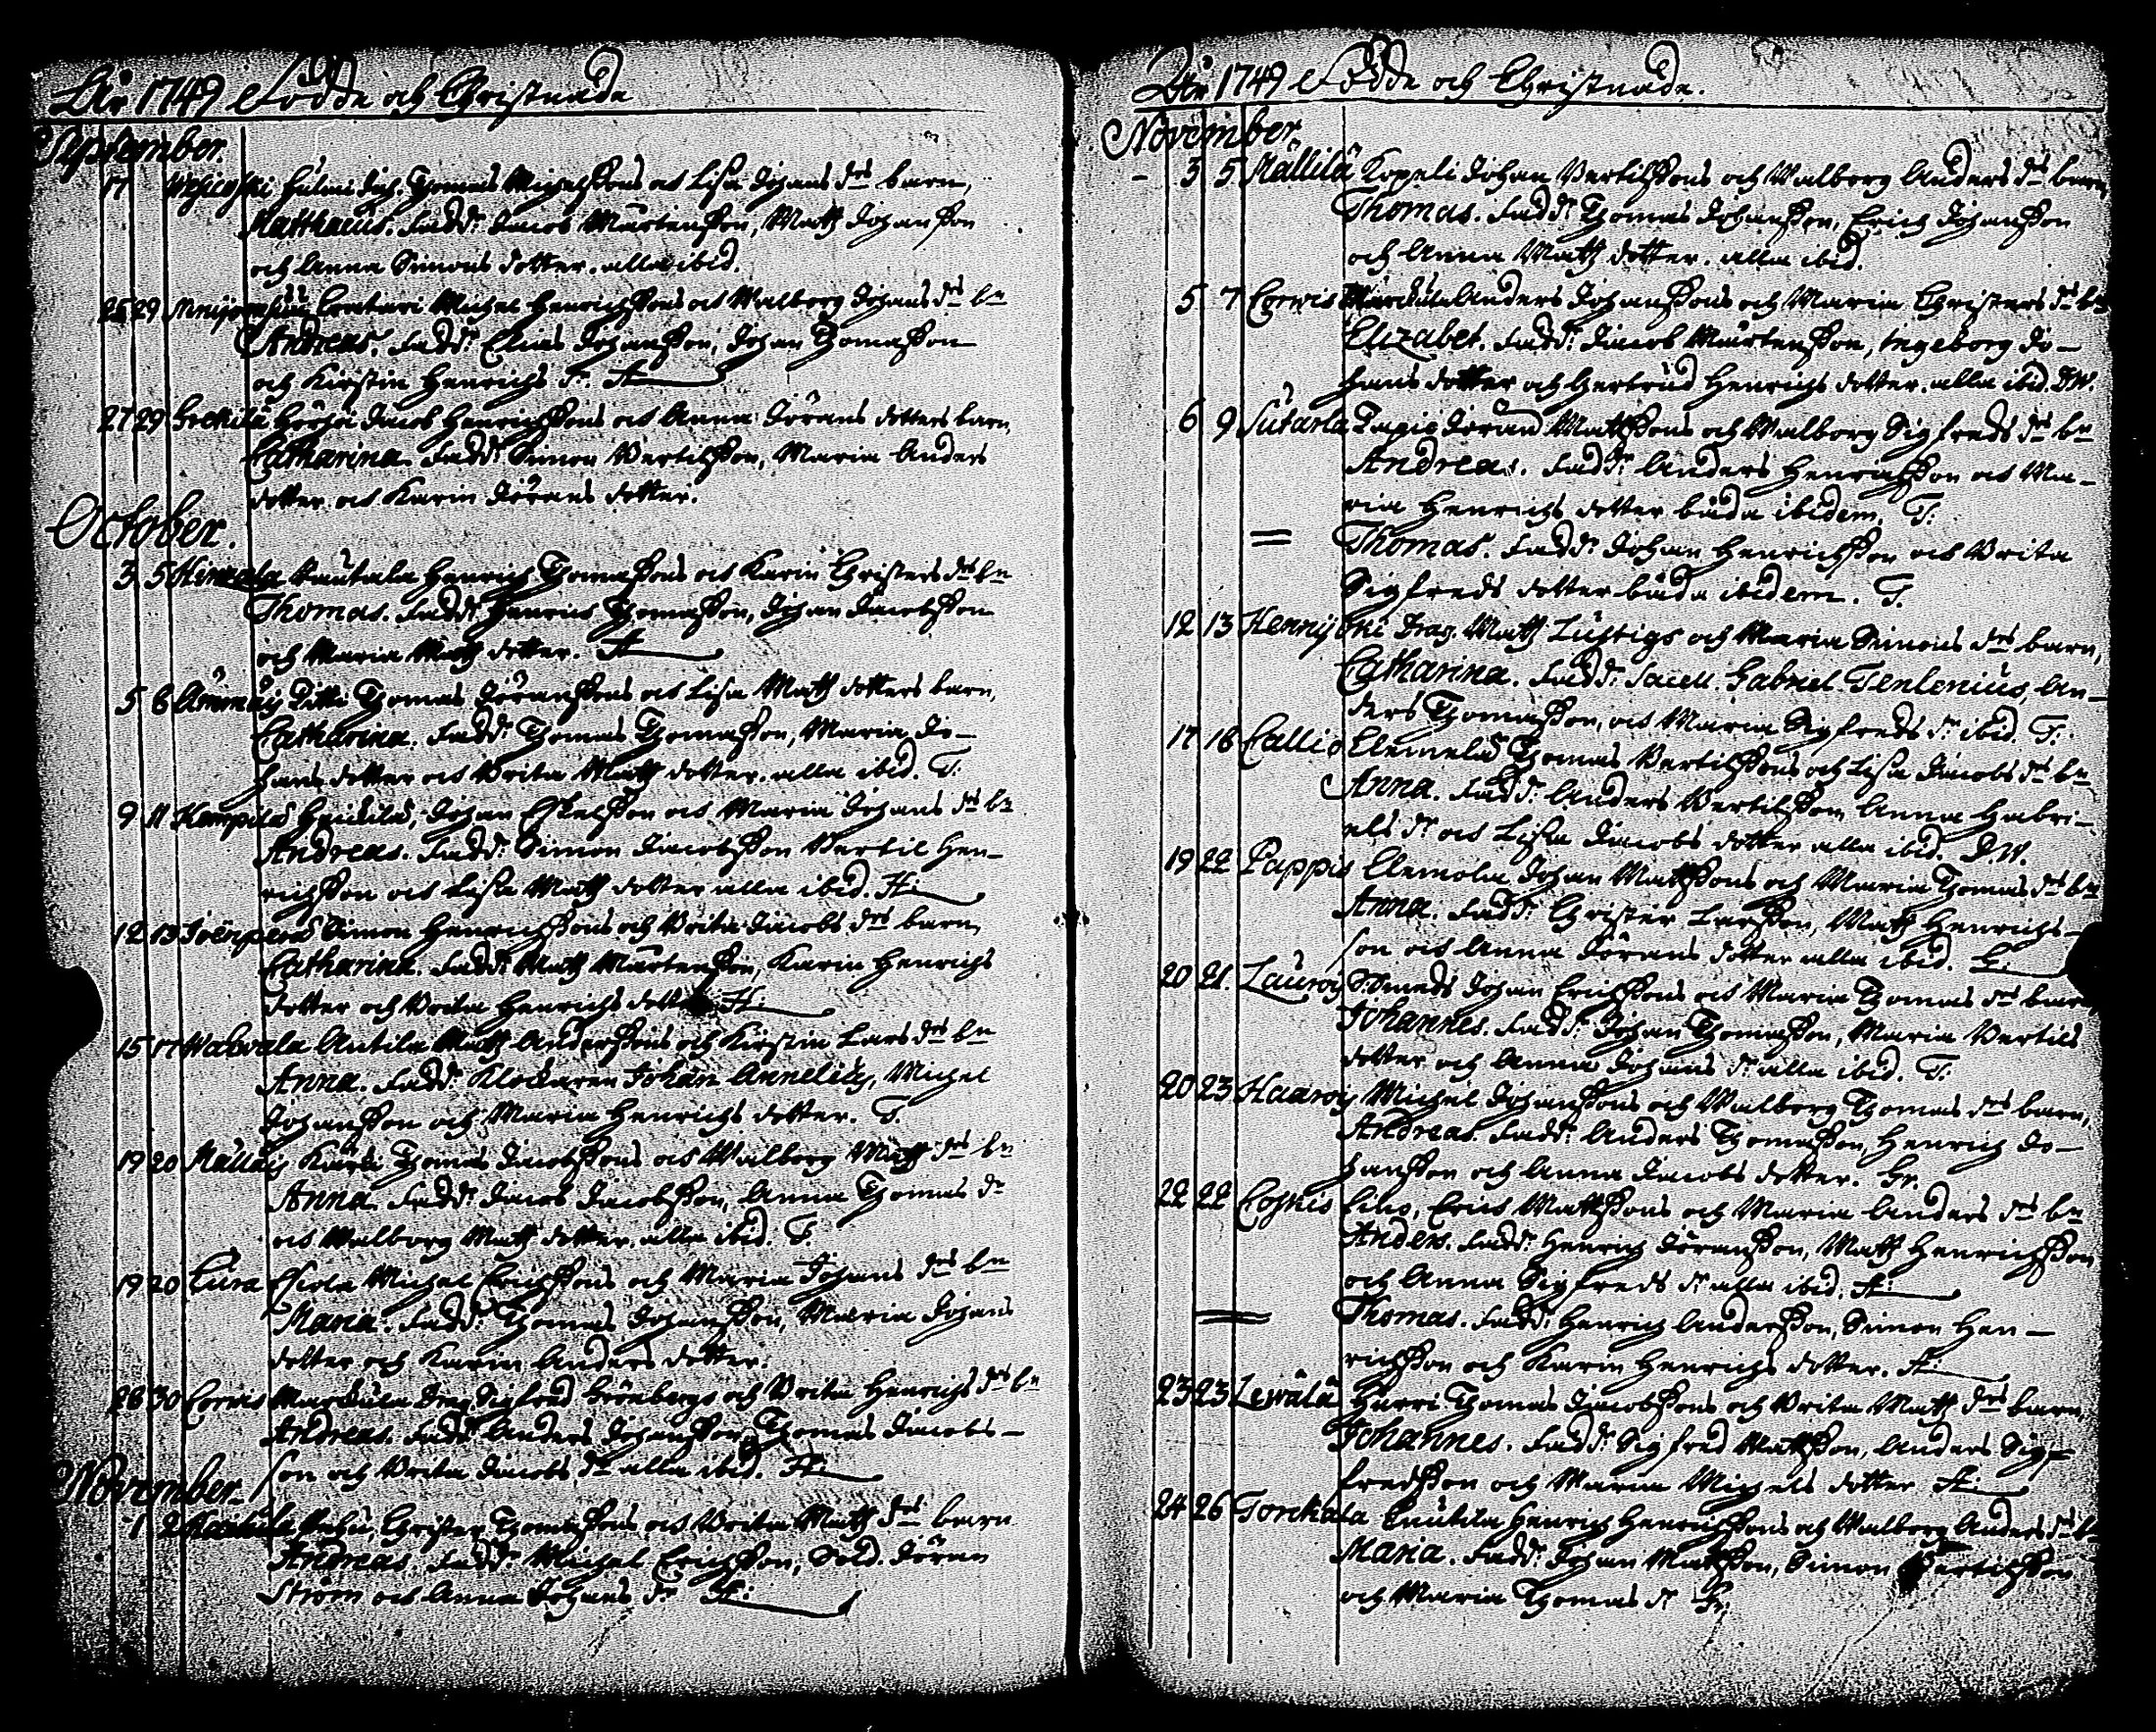 Åhr 1749 Födde och Christnade
September.
17 Huhni Inh. Thomas Michelssons och Lisa Johans drs barn,
Matthaeus. Fadd: Jacob Mårtensson, Matth Johansson
och Anna Simons dotter. alla ibid.
25 29 Michel Henrichssons och Walborg Johans drs bn
Andreas. Fadd: Elias Johansson, Johan Thomasson
och Kirstin Henrichs dr. H
27 29 Jacob Henrichssons och Anna Jörans dotters barn,
Catharina. Fadd: Simon Bertilsson, Maria Anders
dotter och Karin Jörans dotter.
October.
3 5 Rautala Henrich Thomassons och Karin Christers drs bn
Thomas. Fadd: Henrich Thomasson, Johan Jacobsson
och Maria Matth dotter. H
5 6 Titti Thomas Jöranssons och Lisa Matth dotters barn,
Catharina. Fadd: Thomas Thomasson, Maria Jo-
hans dotter och Brita Matth dotter. alla ibid. T.
9 11 Kempilä Heickilä, Johan Eskelsson och Maria Johans drs bn
Andreas. Fadd: Simon Jacobsson Bertil Hen-
richsson och Lisa Matth dotter alla ibid. H:
12 13 Simon Henrichssons och Brita Jacobs drs barn,
Catharina. Fadd: Matth Mårtensson, Karin Henrichs
dotter och Brita Henrichs dotter H:
15 17 Antila Matth Anderssons och Kirstin Lars drs bn
Anna. Fadd: Klockaren Johan Annelius, Michel
Johansson och Maria Henrichs dotter. T.
19 20 Thomas Jacobssons och Walborg Matth drs bn
Anna. Fadd: Jacob Jacobsson, Anna Thomas dr
och Walborg Matth dotter. alla ibid. T
19 20 Lura Michel Erichssons och Maria Johans drs bn
Maria. Fadd: Thomas Johansson, Maria Johans
dotter och Karin Anders dotter.
28 30 Corvis Marckula Drag Sigfred Grönbergs och Brita Henrichs drs bn
Andreas. Fadd: Anders Johansson, Thomas Jacobs-
son och Brita Jacobs dr alla ibid. H:
November.
1 2 Christer Thomassons och Brita Matth drs barn
Andreas. Fadd: Michel Erichsson, Sold. Jöran
Ström och Anna Johans dr H:
Åhr 1749 Födde och Christnade.
November.
3 5 Mallila Kopeli Johan Bertilssons och Walborg Anders drs barn,
Thomas. Fadd: Thomas Johansson, Erich Johansson
och Anna Matth dotter. alla ibid.
5 7 Corvis Marckula Anders Johanssons och Maria Christers drs bn
Elizabet. Fadd: Jacob Mårtensson, Ingeborg Jo-
hans dotter och Gertrud Henrichs dotter. alla ibid. J.W.
6 9 Sutarla Tapio Jöran Mattssons och Walborg Sigfreds drs bn
Andreas. Fadd: Anders Henrichsson och Ma-
ria Henrichs dotter båda ibidem. T.
= Thomas. Fadd: Johan Henrichsson och Brita
Sigfreds dotter båda ibidem. T.
12 13 Drag. Matth Lustigs och Maria Simons drs barn,
Catharina. Fadd: Sacell. Gabriel Tenlenius, An-
ders Thomasson, och Maria Sigfreds dr ibid. T.
17 18 Callio Clemelä Thomas Bertilssons och Lisa Jacobs drs bn
Anna. Fadd: Anders Bertilsson, Anna Gabri-
els dr och Lisa Jacobs dotter alla ibid. J.W.
19 22 Pappis Clemola Johan Mattssons och Maria Thomas drs bn
Anna. Fadd: Christer Larsson, Matth Henrichs-
son och Anna Jörans dotter alla ibid.
20 21. Lauroi Smeds Johan Erichssons och Maria Thomas drs barn,
Johannes. Fadd: Johan Thomasson, Maria Bertils
dotter och Anna Johans dr alla ibid. T.
20 23 Haaroi Michel Johanssons och Walborg Thomas drs barn,
Andreas. Fadd: Anders Thomasson, Henrich Jo-
hansson och Anna Jacobs dotter. Gr.
22 22 Coskis Eilo, Erich Mattssons och Maria Anders drs bn
Anders. Fadd: Henrich Jöransson, Matth Henrichsson
och Anna Sigfreds dr alla ibid. H:
= Thomas. Fadd: Henrich Andersson, Simon Hen-
richsson och Karin Henrichs dotter. H:
23 23 Lewälä Harri Thomas Jacobssons och Brita Matth drs barn,
Johannes. Fadd: Sigfred Mattsson, Anders Sig-
fredsson och Maria Michels dotter H:
24 26 Torckala Knutila Henrich Henrichssons och Walborg Anders drs b
Maria. Fadd: Johan Mattsson, Simon Bertilsson
och Maria Thomas dr Gr.